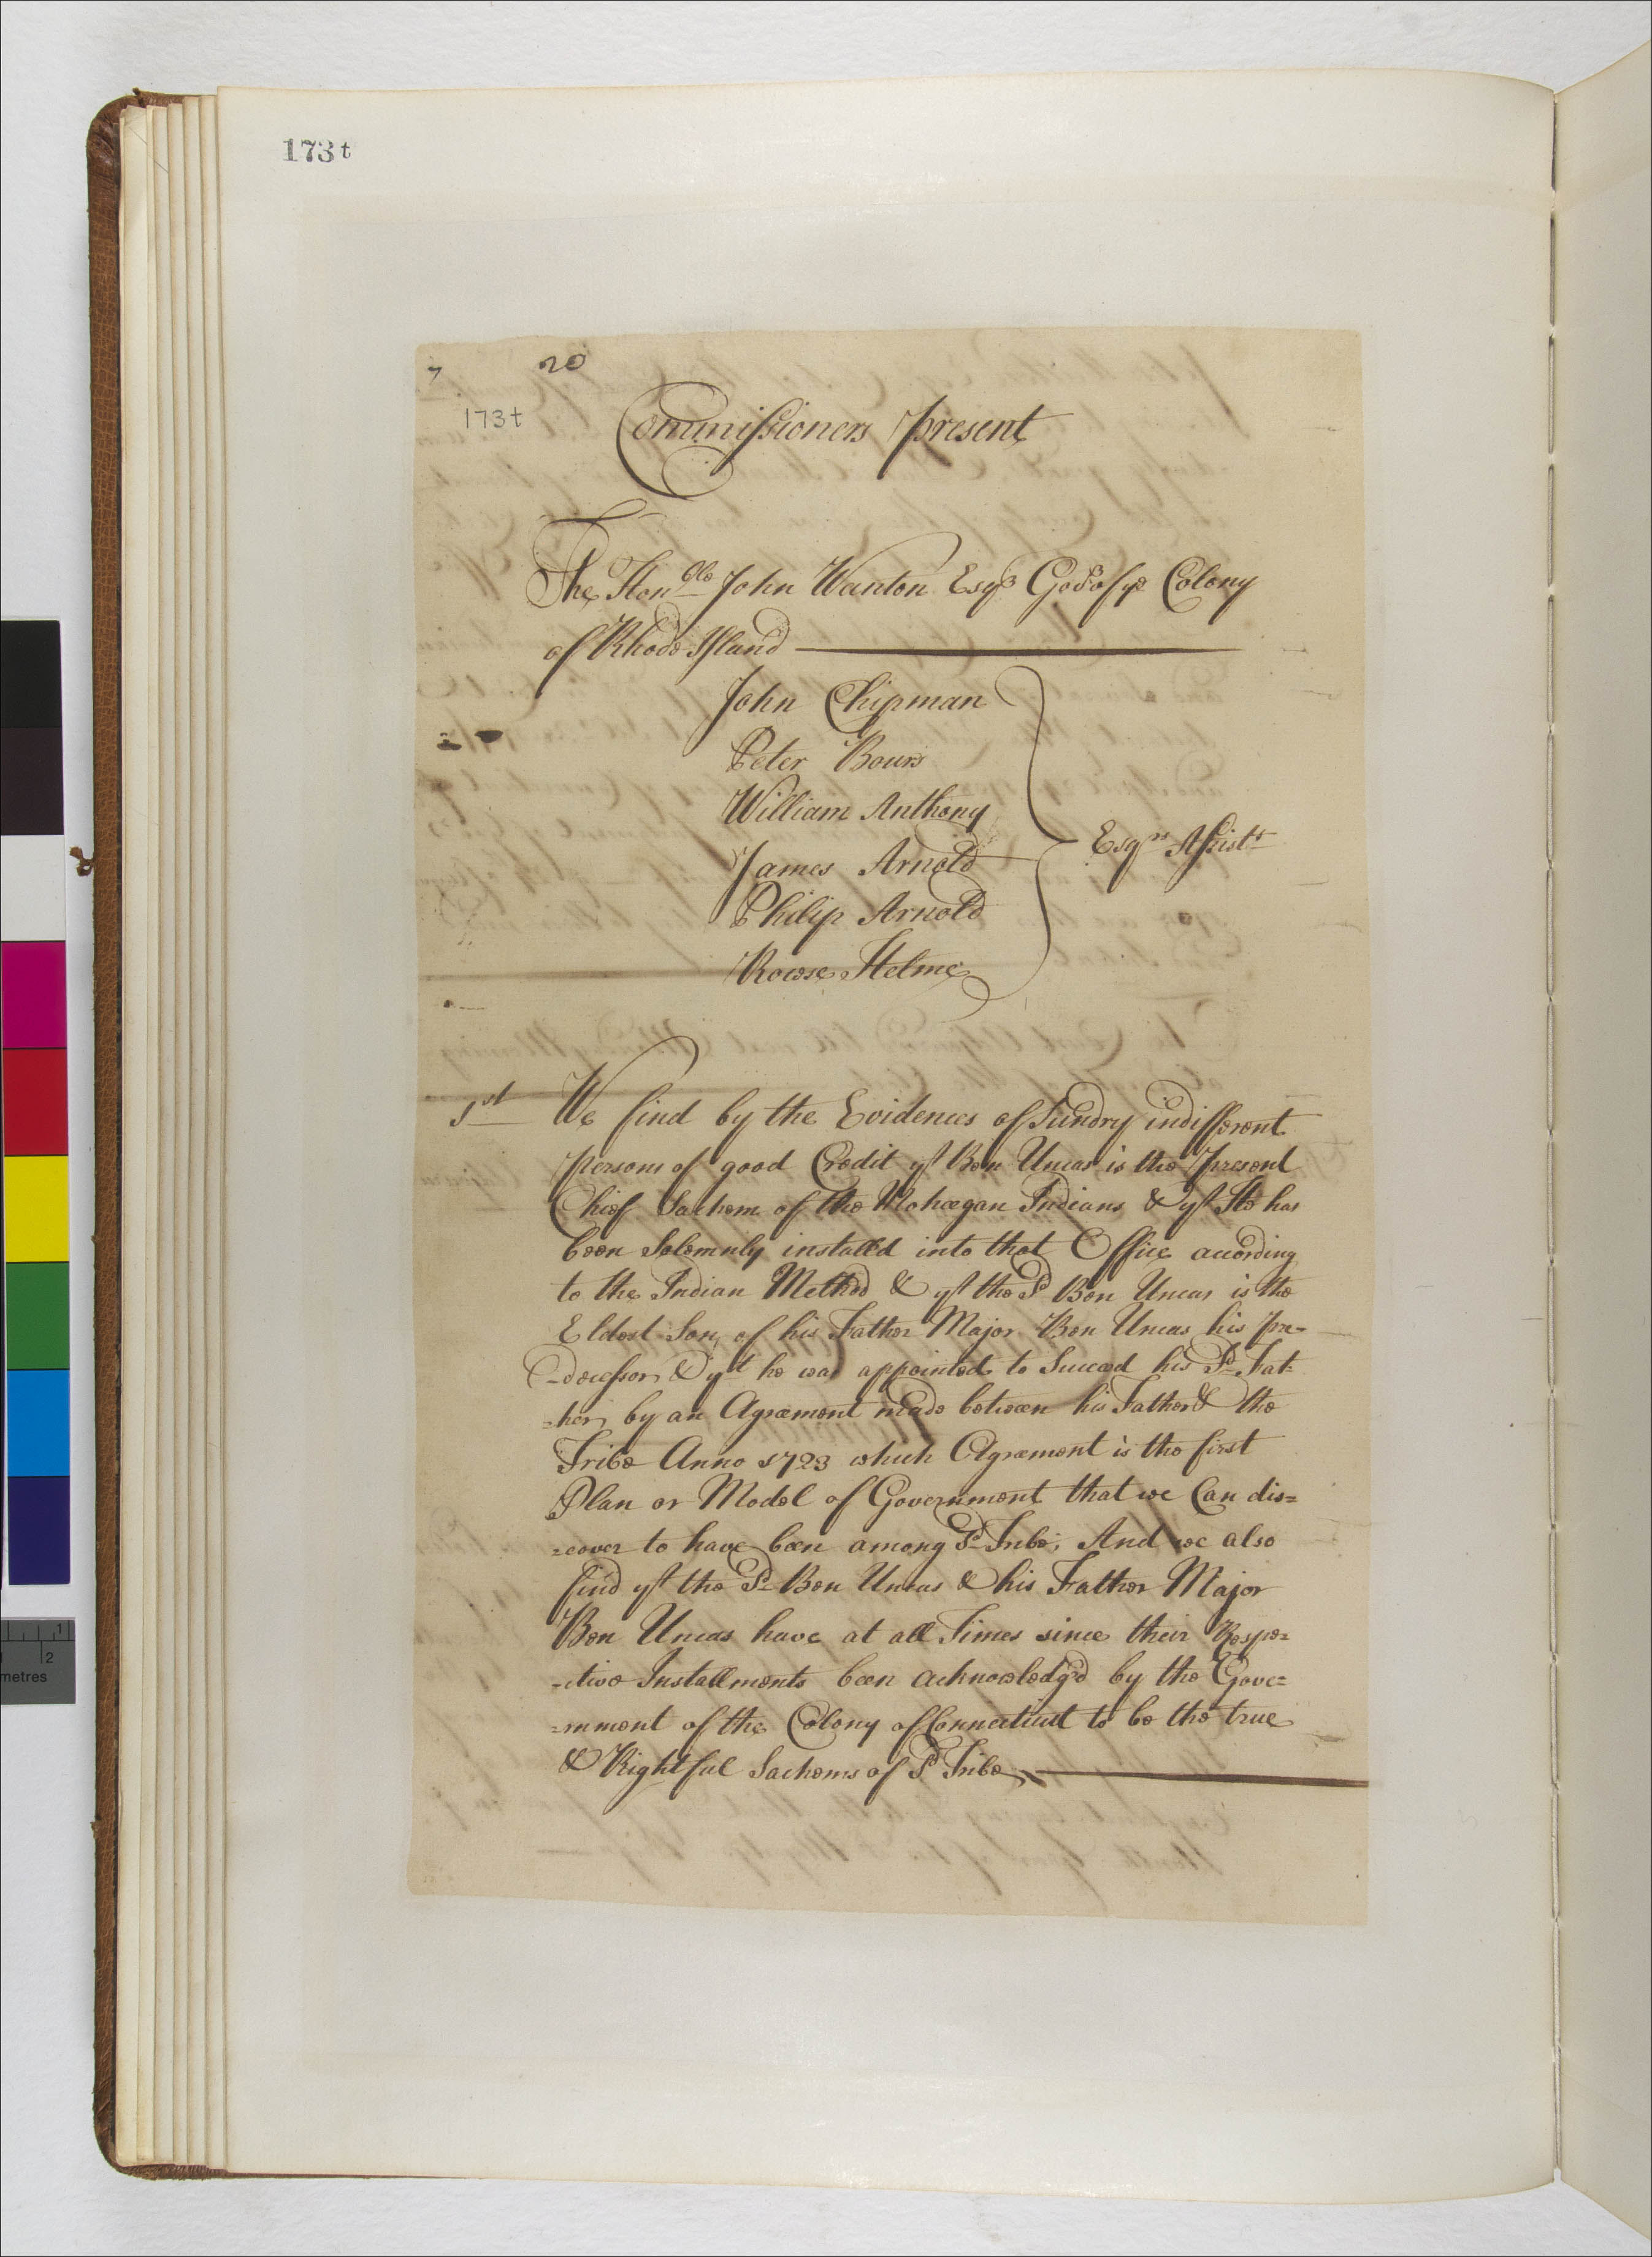 173t
7 20
173t
Commissioners present
The Honble John Wanton Esqr Govr of ye Colony
of Rhode Island
John Chipman
Peter Bours
William Anthony
James Arnold
Esqrs Assists
Philip Arnold
Rowse Helme
1st We find by the Evidences of Sundry indifferent
persons of good Credit yt Ben Uncas is the present
Chief Sachem of the Mohegan Indians & yt He has
been Solemnly install'd into that Office according
to the Indian Method & yt the Sd Ben Uncas is the
Eldest Son of his Father Major Ben Uncas his pre-
-decessor, & yt he was appointed to Succeed his Sd Fat-
-her, by an Agreement made between his Father & the
Tribe Anno 1723 which Agreement is the first
Plan or Model of Government that we Can dis=
=cover to have been among Sd Tribe, And we also
find yt the Sd Ben Uncas & his Father Major
Ben Uncas have at all Times since their Respe=
-ctive Installments been acknowledg'd by the Gove=
=rnment of the Colony of Connecticut to be the true
& Rightful Sachems of Sd Tribe
1
2
metres